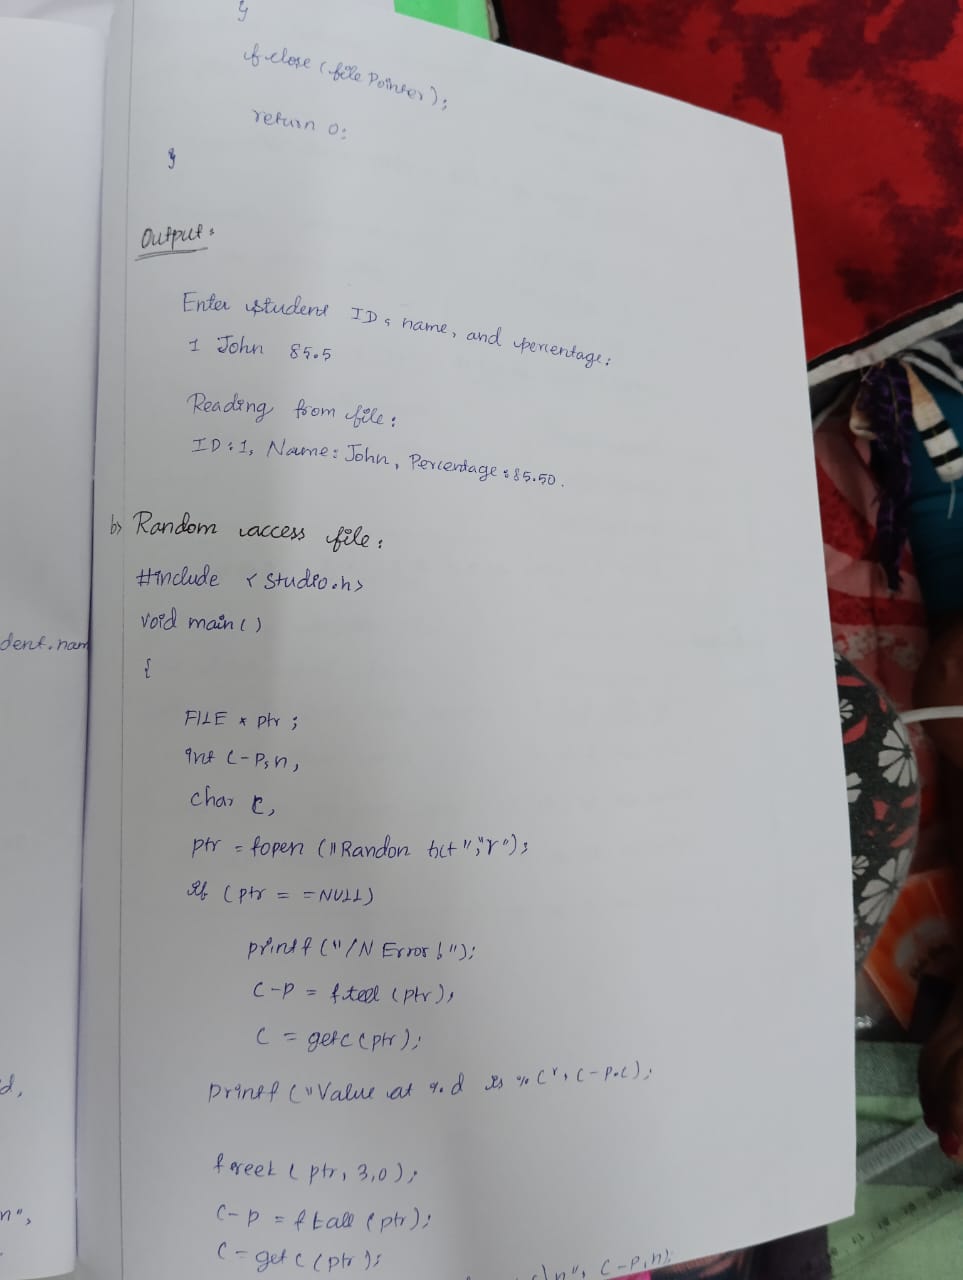 }
fclose (file Pointer);
return 0;
}
Output:
Enter student ID, name, and percentage:
1 John 85.5
Reading from file:
ID:1, Name: John, Percentage:85.50.
b) Random access file:
#include <studio.h>
void main()
{
FILE * ptr;
int C-P,n,
char c,
ptr = fopen ("Randon txt";"r");
if (ptr = =NULL)
printf ("/N Error!");
C-P = ftell (ptr);
C = getc(ptr);
printf ("Value at %d is %C", C-P.C);
freek (ptr, 3,0);
C-P = ftall (ptr);
C = getc(ptr);
\n", C-P,n);
dent.nam
d,
n",